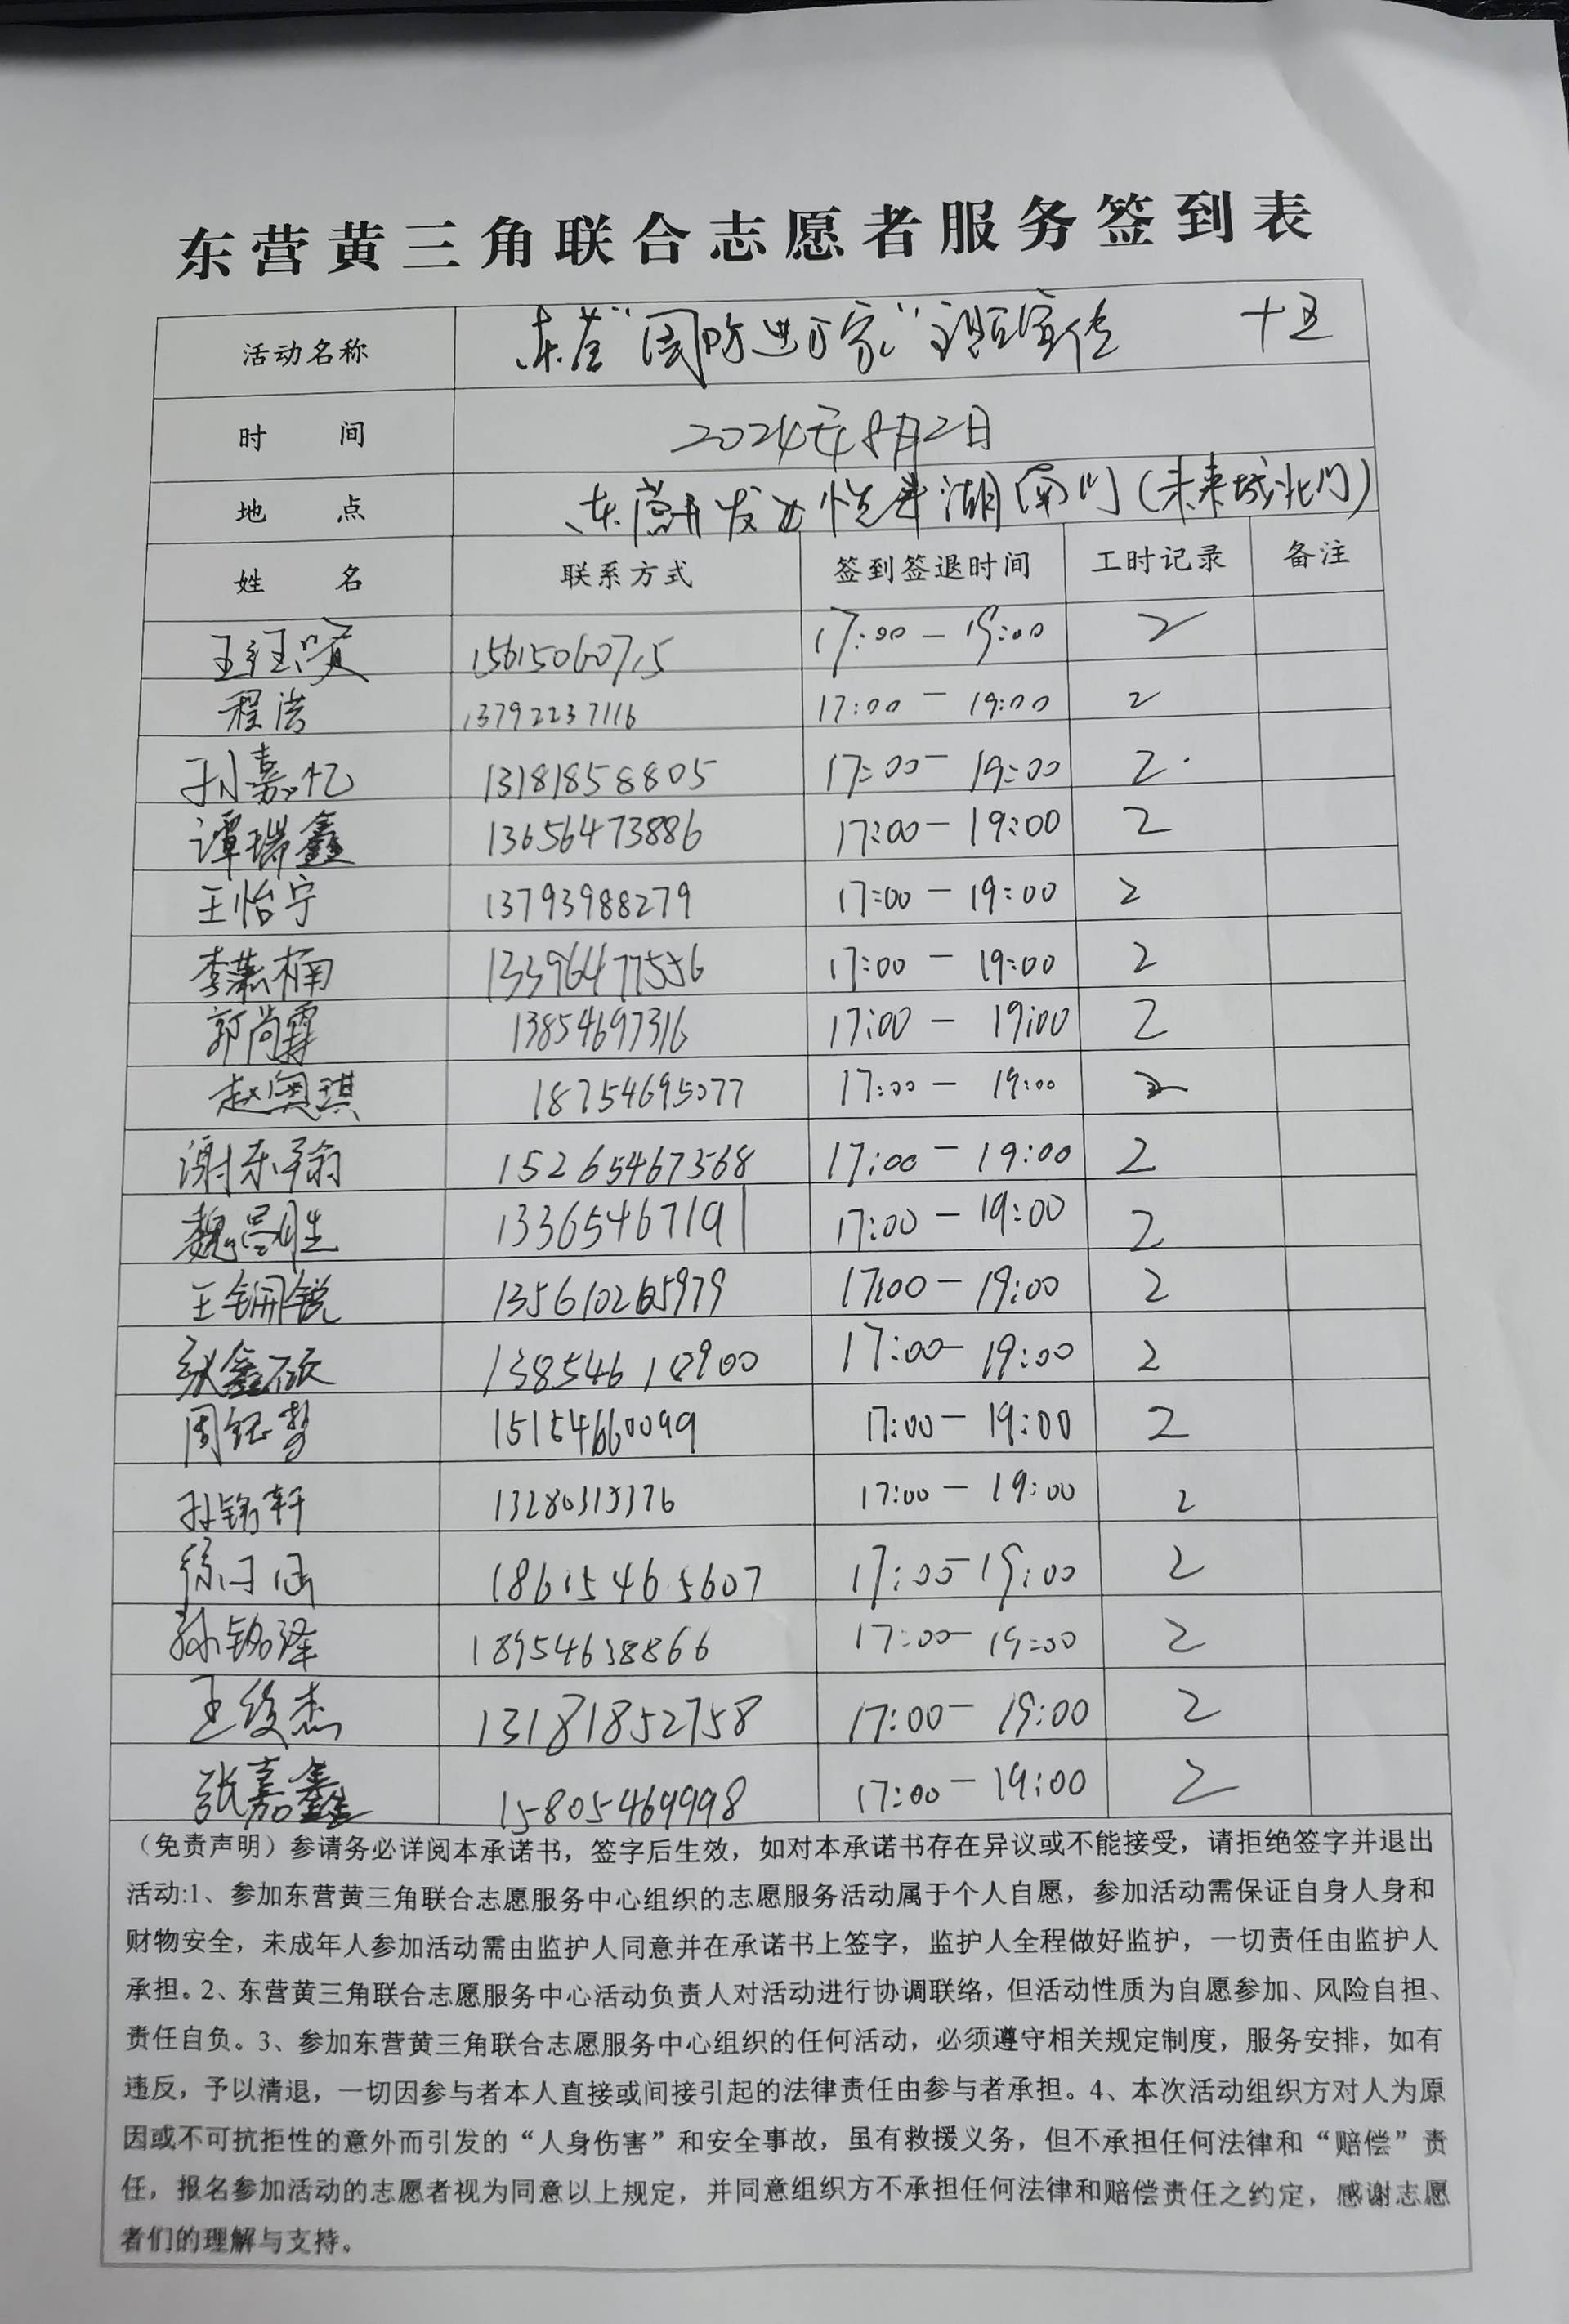 东营黄三角联合志愿者服务签到表
活动名称 东营“国防进万家”主题宣传 十五
时 间 2024年8月2日
地 点 东营开发区悦来湖南门(未来城北门)
姓 名 联系方式 签到签退时间 工时记录 备注
17:00-19:00 2
程浩 13792237116 17:00-19:00 2
孙嘉忆 13181858805 17:00-19:00 2
谭瑞鑫 13656473886 17:00-19:00 2
王怡宁 13793988279 17:00-19:00 2
李潇楠 13396477556 17:00-19:00 2
郭尚霖 13854697316 17:00-19:00 2
赵奥琪 18754695077 17:00-19:00 2
谢东翰 15265467568 17:00-19:00 2
魏 13365467191 17:00-19:00 2
王 锐 17:00-19:00 2
张鑫硕 13854610900 17:00-19:00 2
周钰梦 15154660099 17:00-19:00 2
孙铭轩 17:00-19:00 2
徐 涵 18615465607 17:00-19:00 2
孙铭泽 18954638866 17:00-19:00 2
王俊杰 13181852758 17:00-19:00 2
张嘉鑫 15805469998 17:00-19:00 2
（免责声明）参请务必详阅本承诺书，签字后生效，如对本承诺书存在异议或不能接受，请拒绝签字并退出
活动:1、参加东营黄三角联合志愿服务中心组织的志愿服务活动属于个人自愿，参加活动需保证自身人身和
财物安全，未成年人参加活动需由监护人同意并在承诺书上签字，监护人全程做好监护，一切责任由监护人
承担。2、东营黄三角联合志愿服务中心活动负责人对活动进行协调联络，但活动性质为自愿参加、风险自担、
责任自负。3、参加东营黄三角联合志愿服务中心组织的任何活动，必须遵守相关规定制度，服务安排，如有
违反，予以清退，一切因参与者本人直接或间接引起的法律责任由参与者承担。4、本次活动组织方对人为原
因或不可抗拒性的意外而引发的“人身伤害”和安全事故，虽有救援义务，但不承担任何法律和“赔偿”责
任，报名参加活动的志愿者视为同意以上规定，并同意组织方不承担任何法律和赔偿责任之约定，感谢志愿
者们的理解与支持。